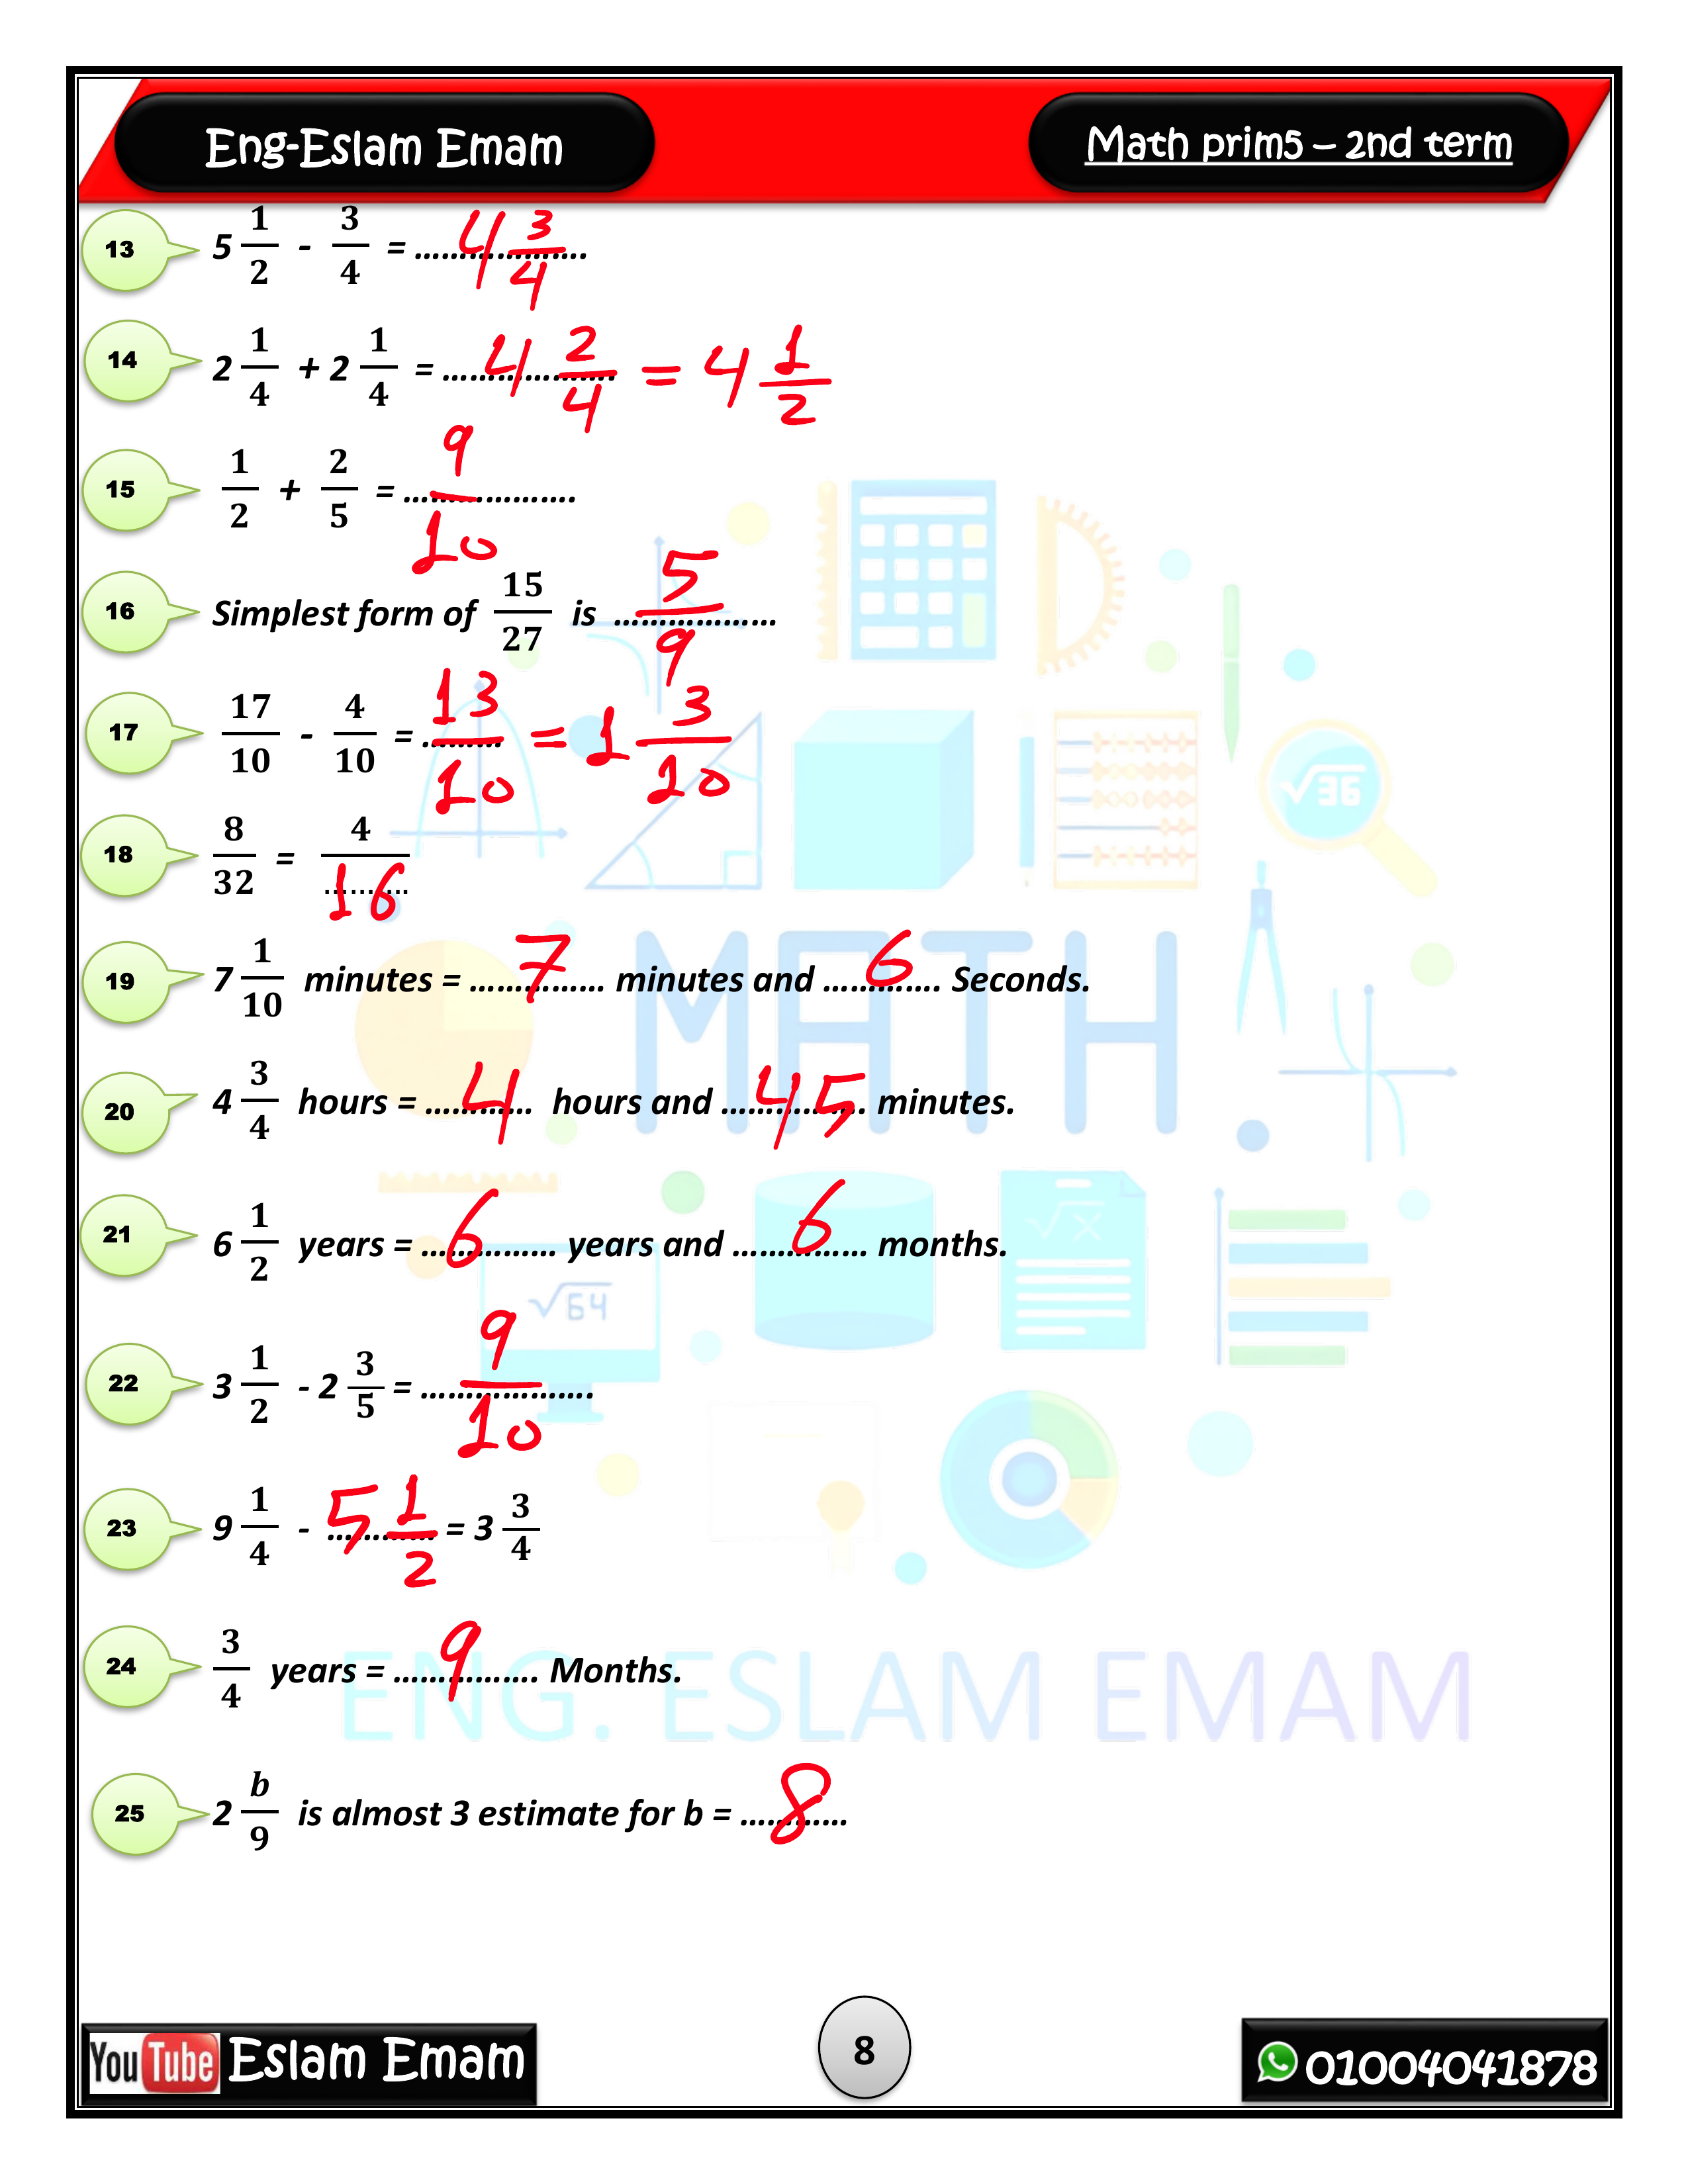 Eng-Eslam Emam
Math prim5 – 2nd term
13 5 1/2 - 3/4 = ................... 4 3/4
14 2 1/4 + 2 1/4 = ................... 4 2/4 = 4 1/2
15 1/2 + 2/5 = ................... 9/10
16 Simplest form of 15/27 is .................. 5/9
17 17/10 - 4/10 = ......... 13/10 = 1 3/10
18 8/32 = 4/.......... 16
19 7 1/10 minutes = ............... 7 minutes and ............. 6 Seconds.
20 4 3/4 hours = ............ 4 hours and ................ 45 minutes.
21 6 1/2 years = ............... 6 years and ............... 6 months.
22 3 1/2 - 2 3/5 = ................... 9/10
23 9 1/4 - ............ 5 1/2 = 3 3/4
24 3/4 years = ................ 9 Months.
25 2 b/9 is almost 3 estimate for b = ............ 8
√36
MATH
√x
√64
ENG. ESLAM EMAM
YouTube Eslam Emam
8
01004041878